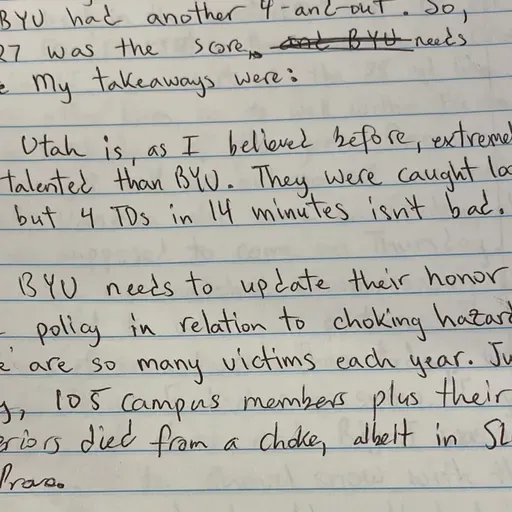 BYU had another 4-and-out. So,
27 was the score. and BYU needs
My takeaways were:
Utah is, as I believed before, extremel
talented than BYU. They were caught
but 4 TDs in 14 minutes isn't bad.
BYU needs to update their honor
policy in relation to choking hazard
are so many victims each year. Ju
105 campus members plus their
died from a choke, albeit in SL
Provo.